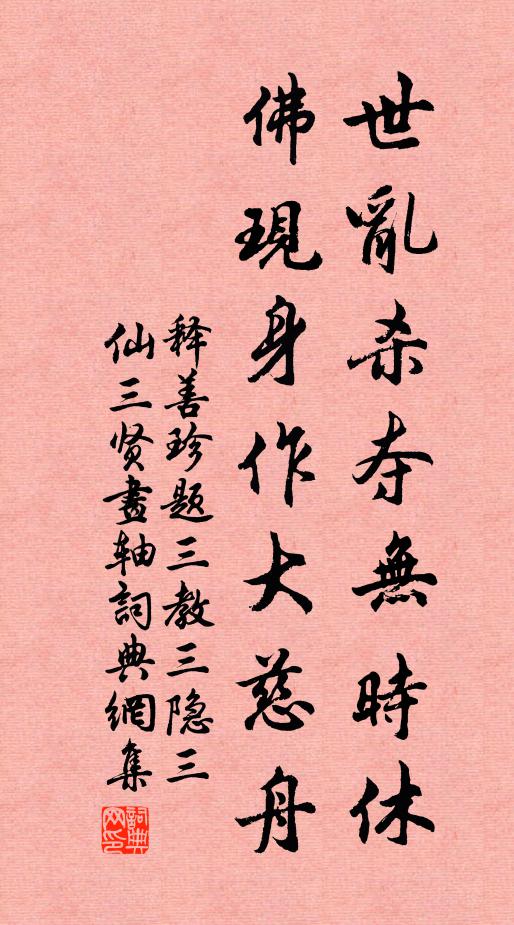 世亂杀夺無時休
佛現身作大慈舟
释善珍题三教三隐三
仙三贤畫轴詞典網集
詞典网印